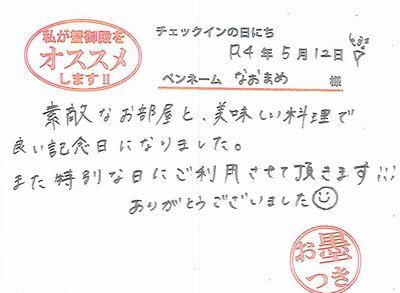 私が蟹御殿を
オススメ
します!!
チェックインの日にち
R4年5月12日
ペンネーム なおまめ 様
素敵なお部屋と、美味しい料理で
良い記念日になりました。
また特別な日にご利用させて頂きます!!!
ありがとうございました
お墨
つき